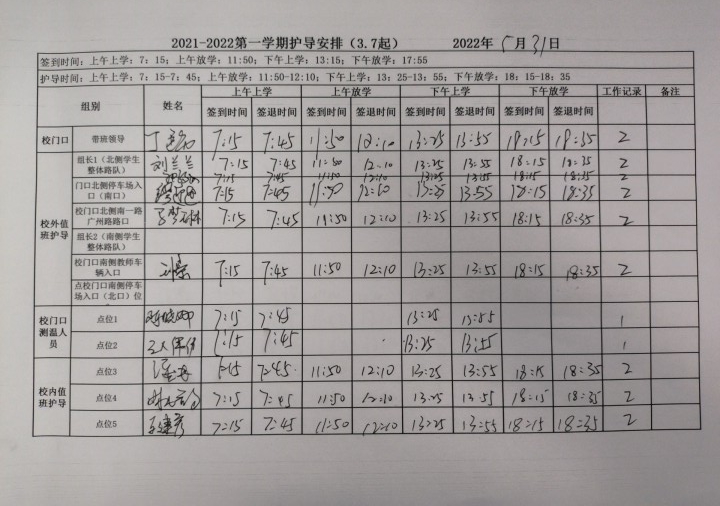 2021-2022第一学期护导安排（3.7起） 2022年 5月31日
签到时间：上午上学：7：15；上午放学：11:50；下午上学：13:15；下午放学：17:55
护导时间：上午上学：7：15-7：45；上午放学：11:50-12:10；下午上学：13：25-13：55；下午放学：18：15-18：35
组别 姓名 上午上学 上午放学 下午上学 下午放学 工作记录 备注
签到时间 签退时间 签到时间 签退时间 签到时间 签退时间 签到时间 签退时间
校门口 带班领导 7:15 7:45 11:50 12:10 13:25 13:55 18:15 18:35 2
校外值班护导
组长1（北侧学生整体路队） 刘兰兰 7:15 7:45 11:50 12:10 13:25 13:55 18:15 18:35 2
7:15 7:45 11:50 12:10 13:25 13:55
门口北侧停车场入口（南口） 7:15 7:45 11:50 12:10 13:25 13:55 18:15 18:35 2
校门口北侧南一路广州路路口 7:15 7:45 11:50 12:10 13:25 13:55 18:15 18:35 2
组长2（南侧学生整体路队）
校门口南侧教师车辆入口 7:15 7:45 11:50 12:10 13:25 13:55 18:15 18:35 2
点校门口南侧停车场入口（北口）位
校门口测温人员
点位1 7:15 7:45 13:25 13:55 1
点位2 7:15 7:45 13:25 13:55 1
校内值班护导
点位3 7:15 7:45 11:50 12:10 13:25 13:55 18:15 18:35 2
点位4 7:15 7:45 11:50 12:10 13:25 13:55 18:15 18:35 2
点位5 7:15 7:45 11:50 12:10 13:25 13:55 18:15 18:35 2